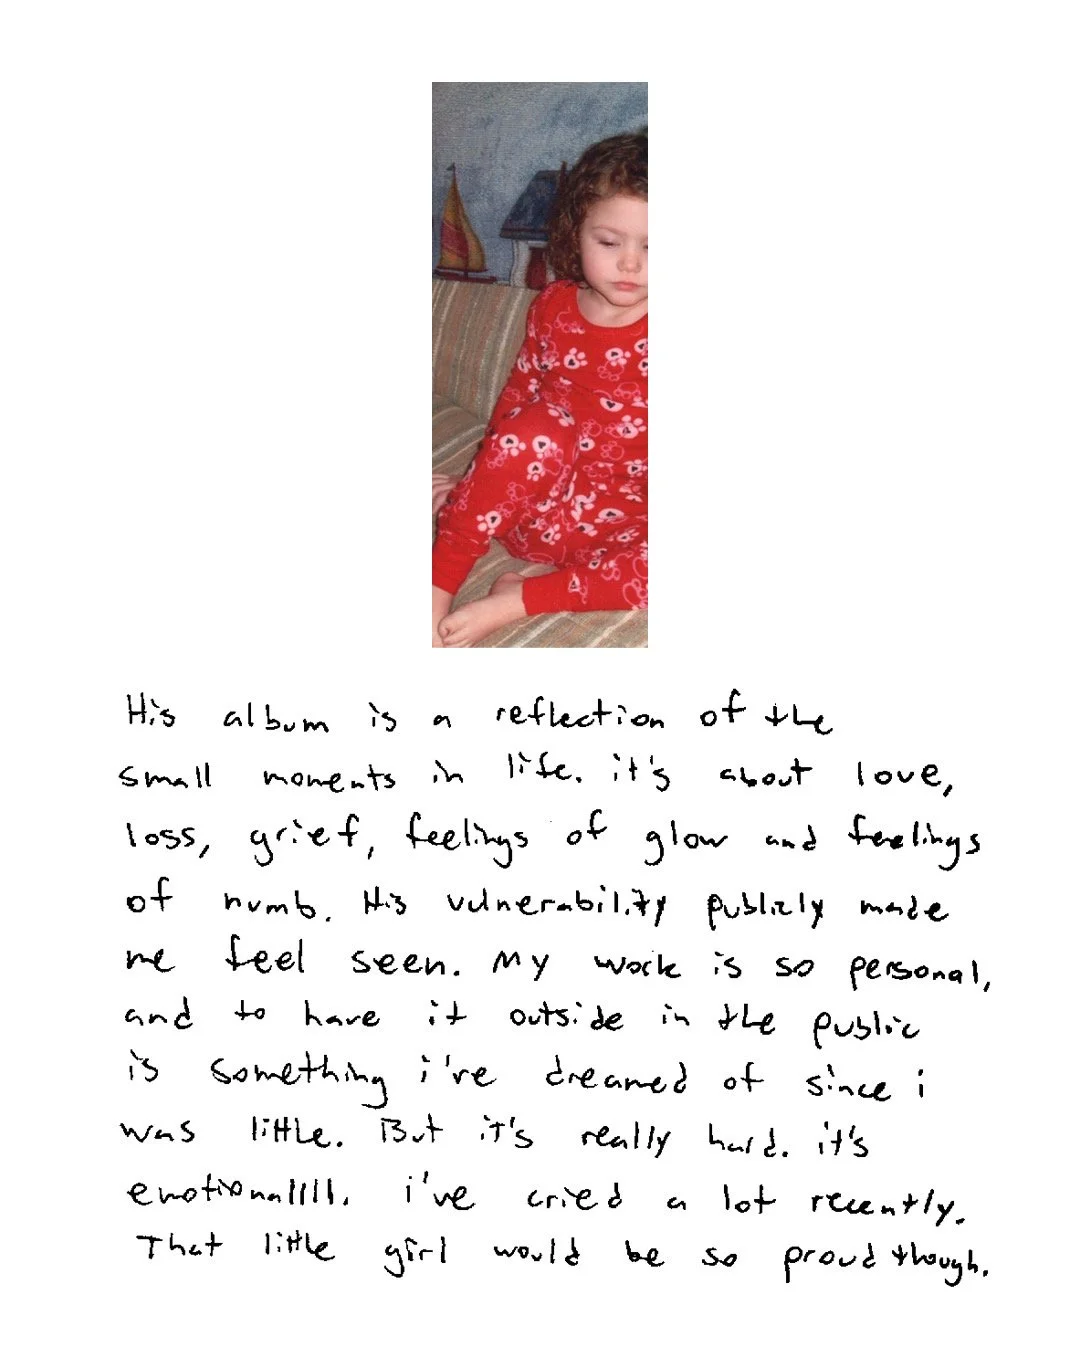 His album is a reflection of the
small moments in life. it's about love,
loss, grief, feelings of glow and feelings
of numb. His vulnerability publicly made
me feel seen. My work is so personal,
and to have it outside in the public
is something i've dreamed of since i
was little. But it's really hard. it's
emotionallll. i've cried a lot recently.
That little girl would be so proud though.